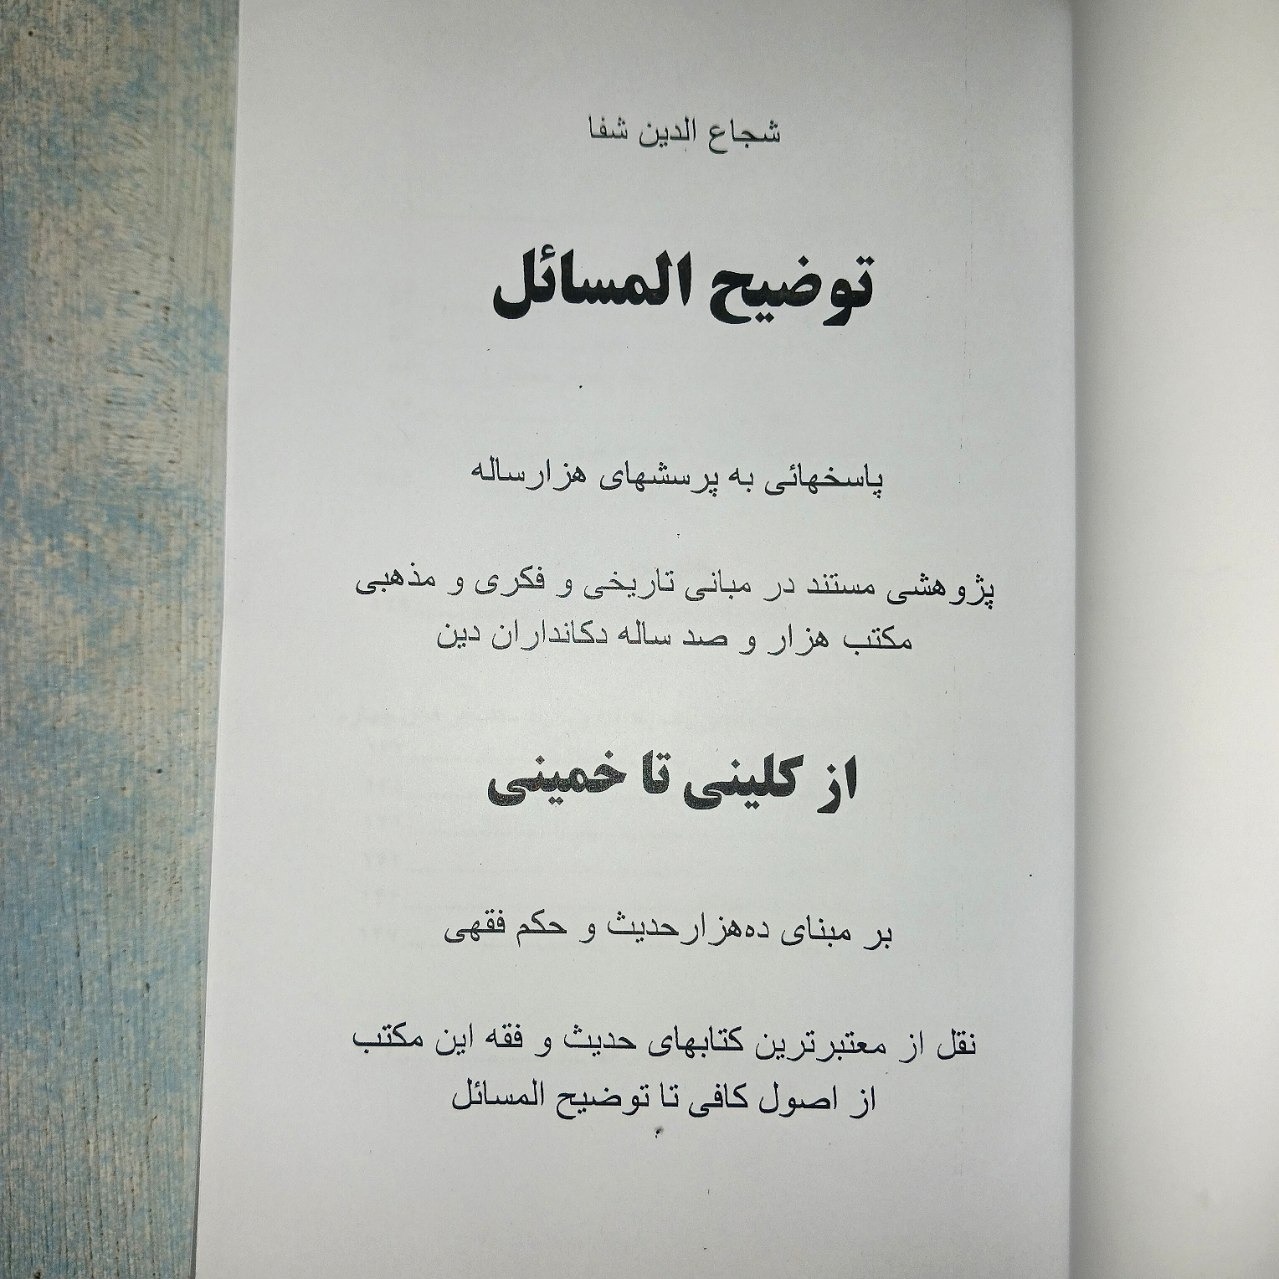 شجاع الدین شفا
توضیح المسائل
پاسخهائی به پرسشهای هزارساله
پژوهشی مستند در مبانی تاریخی و فکری و مذهبی
مکتب هزار و صد ساله دکانداران دین
از کلینی تا خمینی
بر مبنای ده‌هزارحدیث و حکم فقهی
نقل از معتبرترین کتابهای حدیث و فقه این مکتب
از اصول کافی تا توضیح المسائل